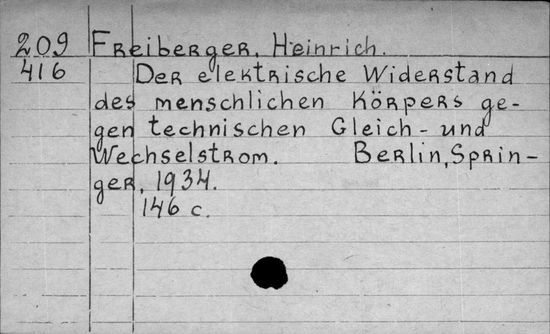 209 Freiberger, Heinrich.
416 Der elektrische Widerstand
des menschlichen Körpers ge-
gen technischen Gleich- und
Wechselstrom. Berlin, Sprin-
ger, 1934.
146 c.